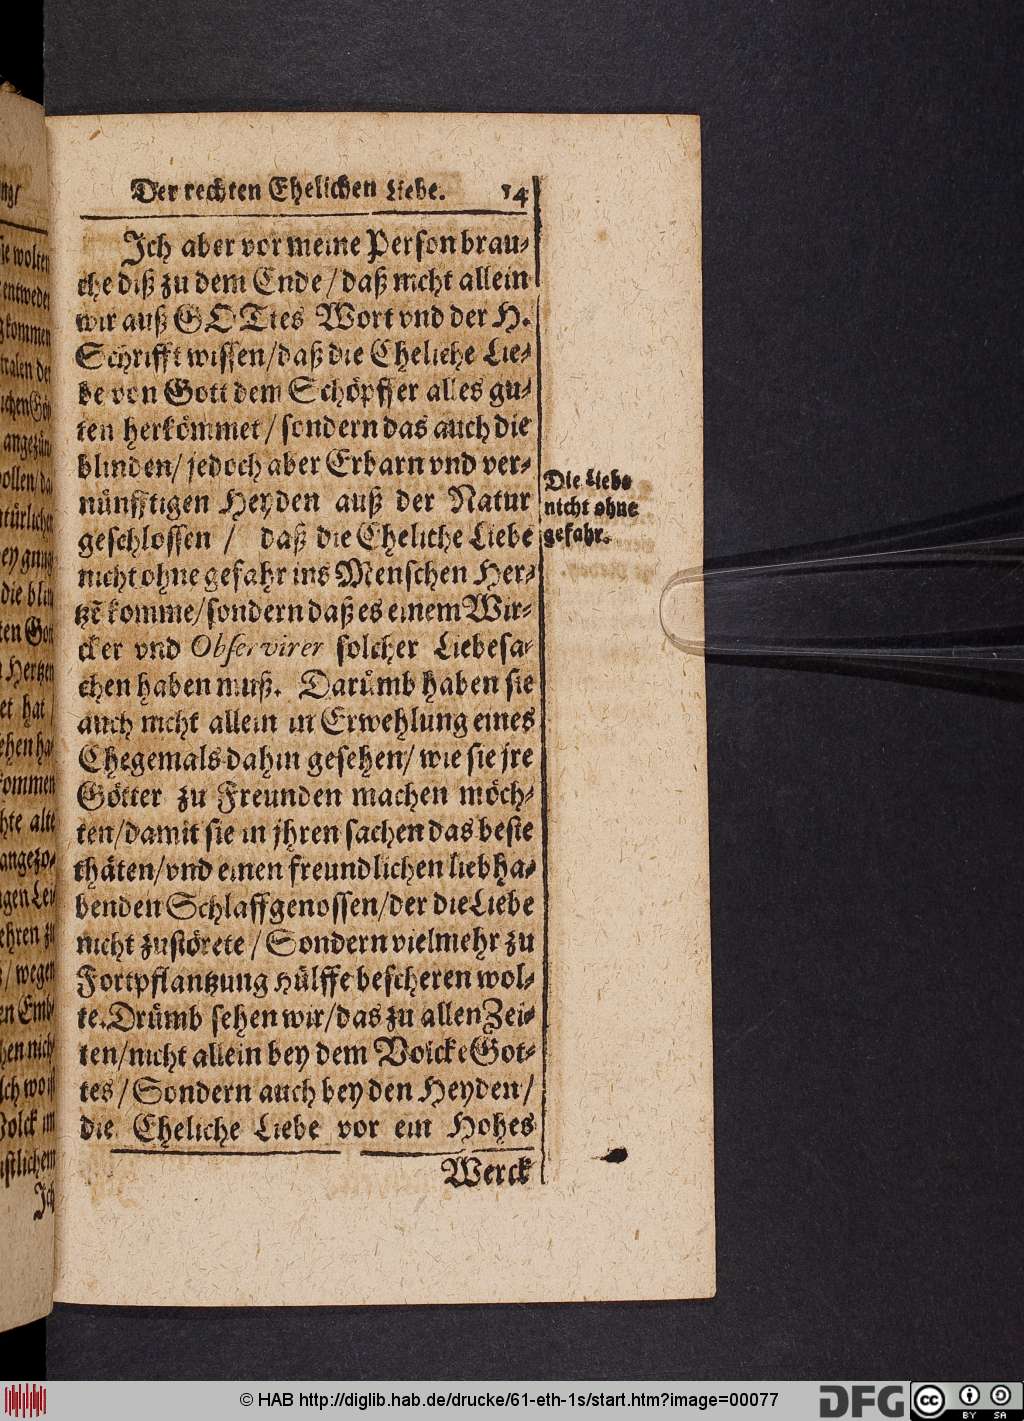 Der rechten Ehelichen Liebe. 14
Ich aber vor meine Person brau-
che diß zu dem Ende / daß nicht allein
wir auß GOTtes Wort vnd der H.
Schrifft wissen/daß die Eheliche Lie-
be von Gott dem Schöpffer alles gu-
ten herkömmet / sondern das auch die
blinden/ jedoch aber Erbarn vnd ver-
nünfftigen Heyden auß der Natur
geschlossen / daß die Eheliche Liebe
nicht ohne gefahr ins Menschen Her-
tzē komme/sondern daß es einem Wir-
cker vnd Observirer solcher Liebesa-
chen haben muß. Darümb haben sie
auch nicht allein in Erwehlung eines
Ehegemals dahin gesehen/ wie sie jre
Götter zu Freunden machen möch-
ten/damit sie in jhren sachen das beste
thäten/vnd einen freundlichen liebha-
benden Schlaffgenossen/der die Liebe
nicht zustörete / Sondern vielmehr zu
Fortpflantzung Hülffe bescheren wol-
te. Drümb sehen wir/das zu allen Zei-
ten/nicht allein bey dem Volcke Got-
tes / Sondern auch bey den Heyden /
die Eheliche Liebe vor ein Hohes
Werck
Die Liebe
nicht ohne
gefahr.
sie wolten
entweder
kommen
angezün
wollen/da
natürliche
die blin
ten Got
Hertzen
et hat /
sehen ha
kommen
chte alte
angezo-
gen Lei
ehren zu
/ wegen
Volck im
Ich
© HAB http://diglib.hab.de/drucke/61-eth-1s/start.htm?image=00077
DFG
cc
BY SA